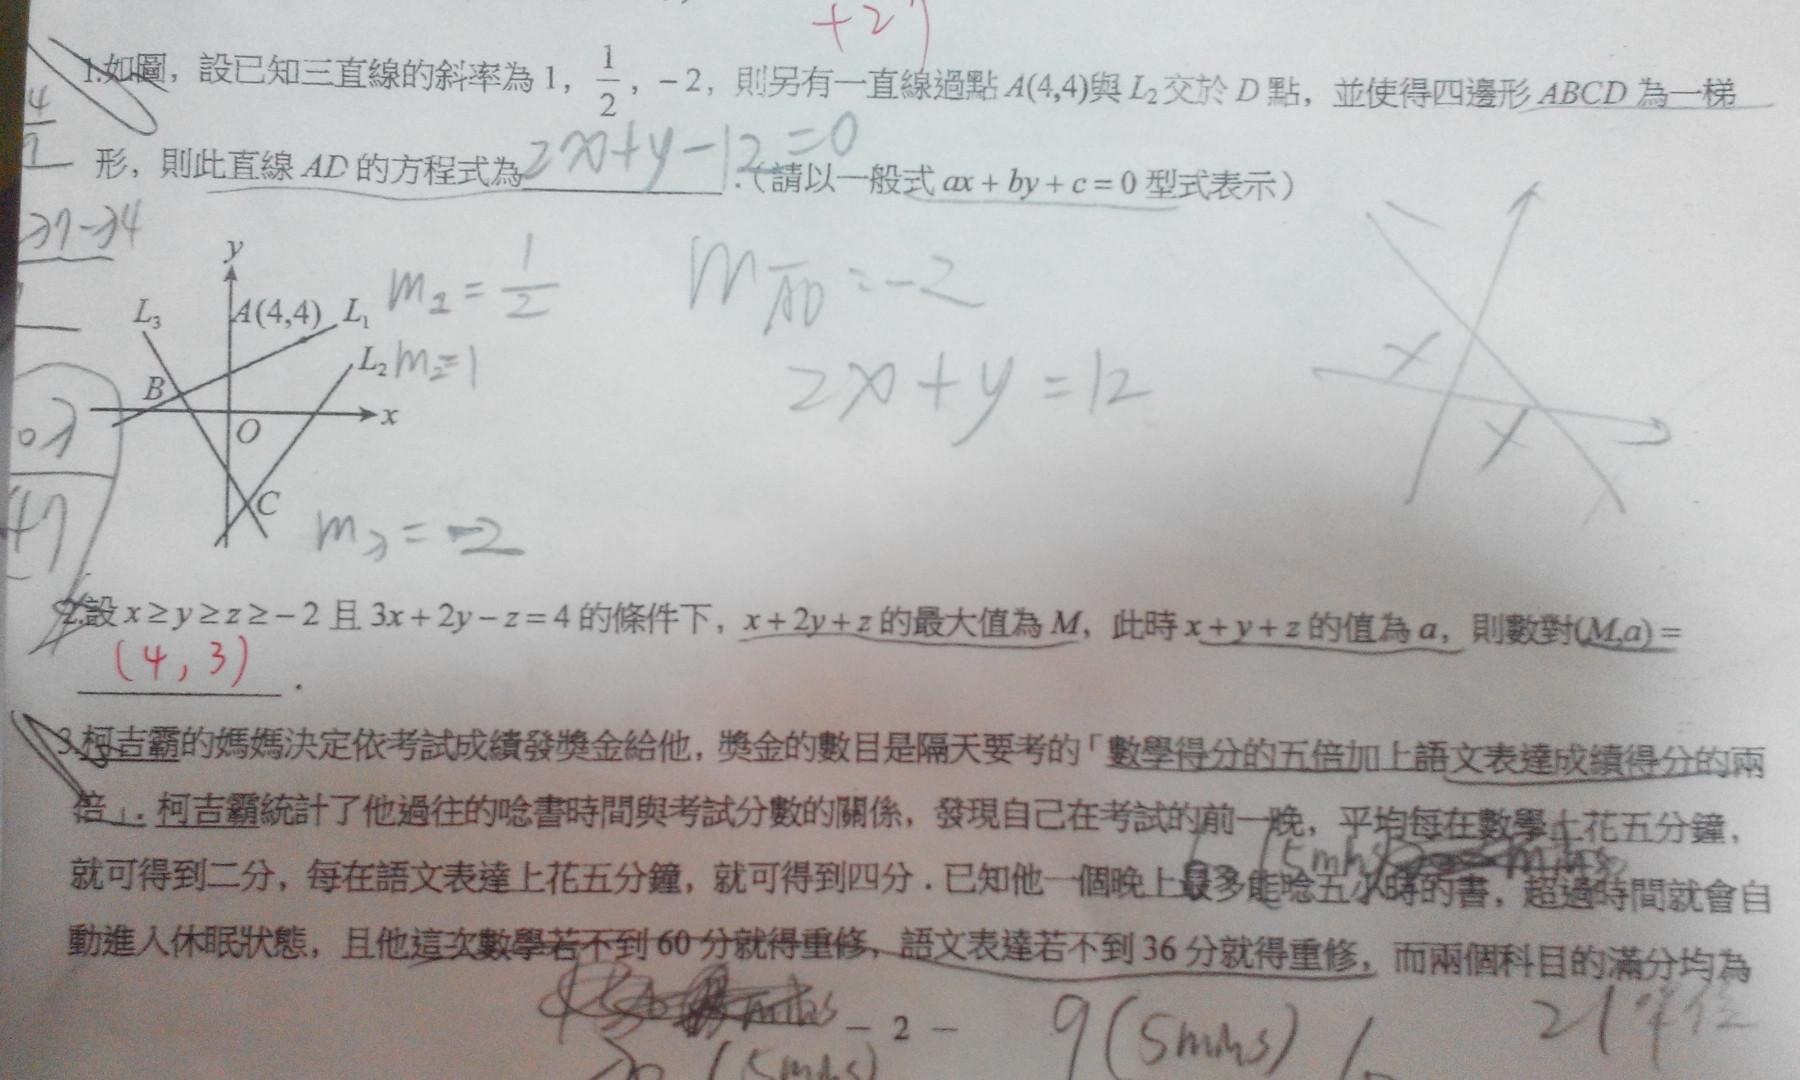 +27
1.如圖，設已知三直線的斜率為 1，1/2，−2，則另有一直線過點 A(4,4)與 L₂ 交於 D 點，並使得四邊形 ABCD 為一梯
形，則此直線 AD 的方程式為 2x+y−12=0 .（請以一般式 ax + by + c = 0 型式表示）
y
L₃
A(4,4)
L₁
m₁ = 1/2
m AD = −2
L₂
m₂=1
2x+y=12
B
O
x
C
m₃ = −2
2.設 x ≥ y ≥ z ≥ − 2 且 3x + 2y − z = 4 的條件下，x + 2y + z 的最大值為 M，此時 x + y + z 的值為 a，則數對(M,a) =
(4,3) .
3.柯吉霸的媽媽決定依考試成績發獎金給他，獎金的數目是隔天要考的「數學得分的五倍加上語文表達成績得分的兩
倍」. 柯吉霸統計了他過往的唸書時間與考試分數的關係，發現自己在考試的前一晚，平均每在數學上花五分鐘，
就可得到二分，每在語文表達上花五分鐘，就可得到四分 . 已知他一個晚上最多能唸五小時的書，超過時間就會自
動進入休眠狀態，且他這次數學若不到 60 分就得重修，語文表達若不到 36 分就得重修，而兩個科目的滿分均為
− 2 −
9(5mins)
21單位
(5mins)